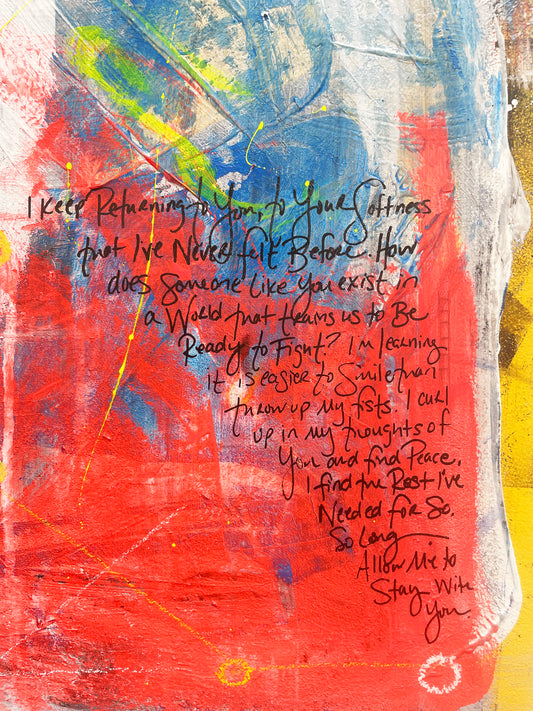 I Keep Returning to You, to Your Softness
that I've Never felt Before. How
does Someone like You exist in
a World that trains us to Be
Ready to Fight? I'm learning
It is easier to Smile than
throw up My fists. I curl
up in my thoughts of
You and find Peace.
I find the Rest I've
Needed for So.
So Long
Allow Me to
Stay With
You.